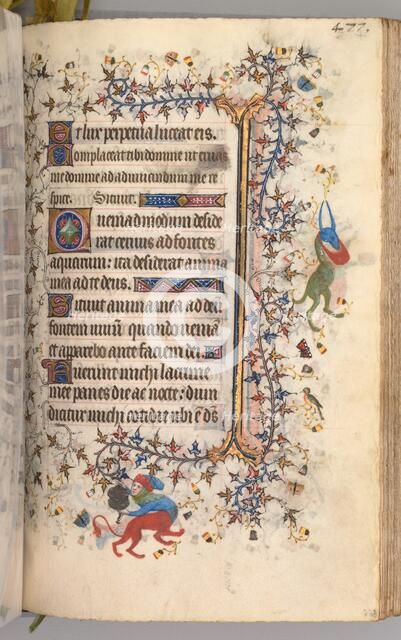 477.
Et lux perpetua luceat eis.
Complaceat tibi domine ut eruas
me domine ad adiuvandum me re
spice. Sicut.
Quemadmodum deside
rat cervus ad fontes
aquarum: ita desiderat anima
mea ad te deus.
Sitivit anima mea ad deum
fontem vivum quando veniam
et apparebo ante faciem dei
Fuerunt michi lacrime
mee panes die ac nocte: dum
dicitur michi cotidie ubi e ds
Heritage
Heritage